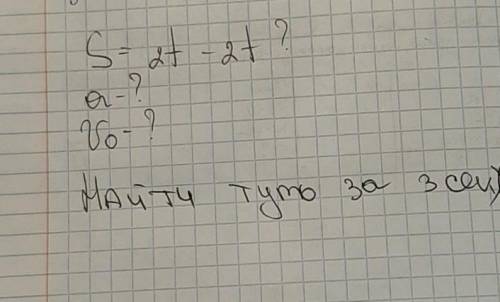 S = 2t - 2t ?
a - ?
V₀ - ?
Найти путь за 3 сек